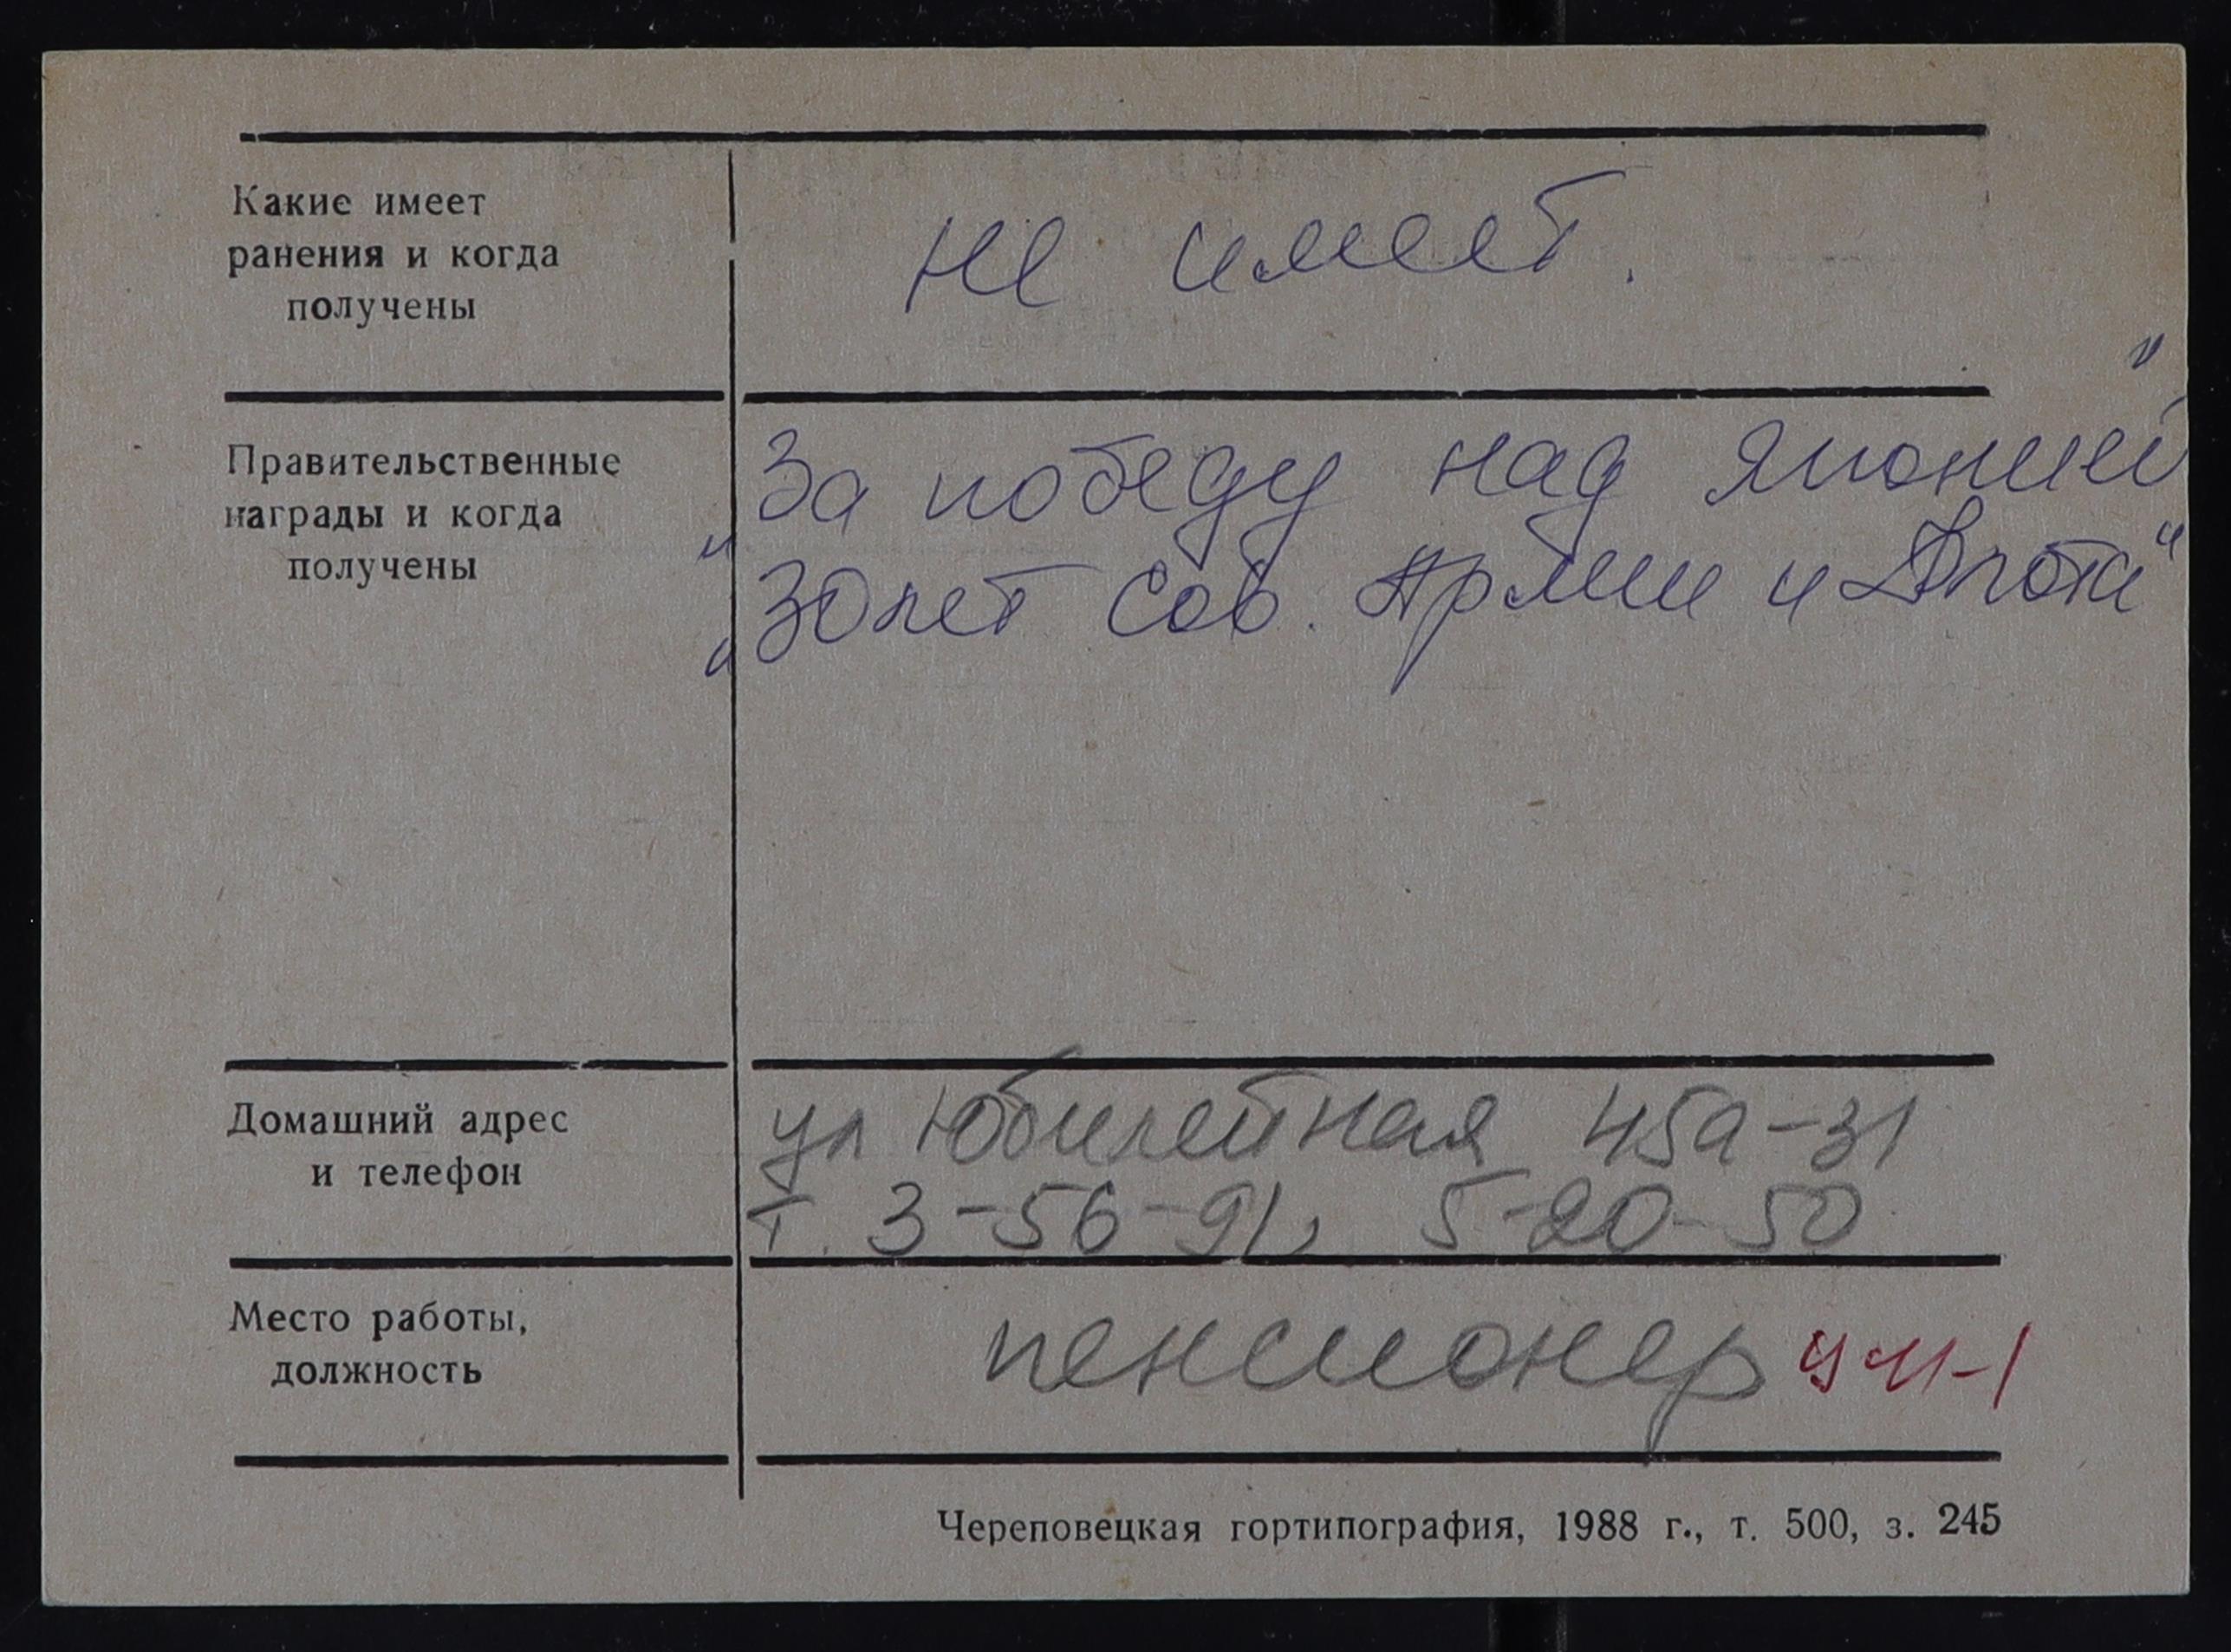 Какие имеет
ранения и когда
получены
не имеет.
Правительственные
награды и когда
получены
„За победу над Японией"
„30 лет Сов. Армии и Флота"
Домашний адрес
и телефон
ул Юбилейная 45а-31
т. 3-56-91, 5-20-50
Место работы,
должность
пенсионер
Череповецкая гортипография, 1988 г., т. 500, з. 245